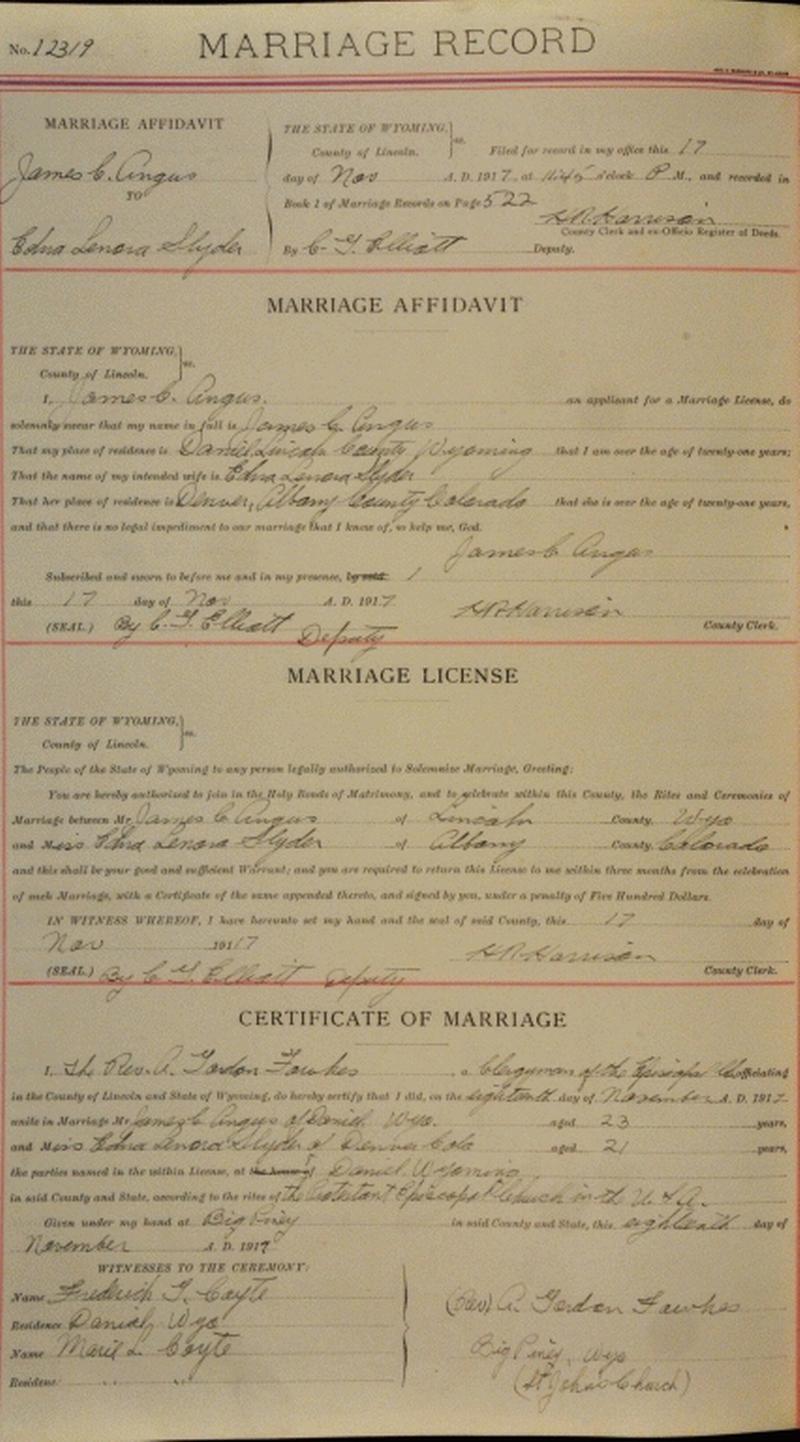 No. 12319 MARRIAGE RECORD
MARRIAGE AFFIDAVIT
James C. Angus
TO
Edna Lenora Slyder
THE STATE OF WYOMING, } ss.
County of Lincoln.
Filed for record in my office this 17
day of Nov A. D. 1917, at o'clock P M., and recorded in
Book 1 of Marriage Records on Page 522
H R Harrison
County Clerk and ex-Officio Register of Deeds.
By C. T. Elliott Deputy.
MARRIAGE AFFIDAVIT
THE STATE OF WYOMING, } ss.
County of Lincoln.
I, James C. Angus. an applicant for a Marriage License, do
solemnly swear that my name in full is James C. Angus
That my place of residence is Daniel Lincoln County Wyoming that I am over the age of twenty-one years;
That the name of my intended wife is Edna Lenora Slyder
That her place of residence is Denver, Albany County Colorado that she is over the age of twenty-one years,
and that there is no legal impediment to our marriage that I know of, so help me, God.
James C Angus
Subscribed and sworn to before me and in my presence,
this 17 day of Nov A. D. 1917 H R Harrison
(SEAL) By C. T. Elliott Deputy County Clerk.
MARRIAGE LICENSE
THE STATE OF WYOMING, } ss.
County of Lincoln.
The People of the State of Wyoming to any person legally authorized to Solemnize Marriage, Greeting:
You are hereby authorized to join in the Holy Bonds of Matrimony, and to celebrate within this County, the Rites and Ceremonies of
Marriage between Mr. James C Angus of Lincoln County, Wyo
and Miss Edna Lenora Slyder of Albany County, Colorado
and this shall be your good and sufficient Warrant; and you are required to return this License to me within three months from the celebration
of such Marriage, with a Certificate of the same appended thereto, and signed by you, under a penalty of Five Hundred Dollars.
IN WITNESS WHEREOF, I have hereunto set my hand and the seal of said County, this 17 day of
Nov 1917 H R Harrison
(SEAL) By C T. Elliott Deputy County Clerk.
CERTIFICATE OF MARRIAGE
I, The Rev. A. Gordon Fawkes, a Clergyman of the Episcopal Ch officiating
in the County of Lincoln and State of Wyoming, do hereby certify that I did, on the eighteenth day of November A. D. 1917
unite in Marriage Mr. James C Angus of Daniel Wyo. aged 23 years,
and Miss Edna Lenora Slyder of Denver Colo aged 21 years,
the parties named in the within License, at the house of Daniel Wyoming
in said County and State, according to the rites of the Protestant Episcopal Church in the U. S. A.
Given under my hand at Big Piney in said County and State, this eighteenth day of
November A. D. 1917
WITNESSES TO THE CEREMONY:
Name Frederick T. Coyte
Residence Daniel, Wyo
Name Marie L. Coyte
Residence " "
(Rev) A. Gordon Fawkes
Big Piney, Wyo
(St John's Church)